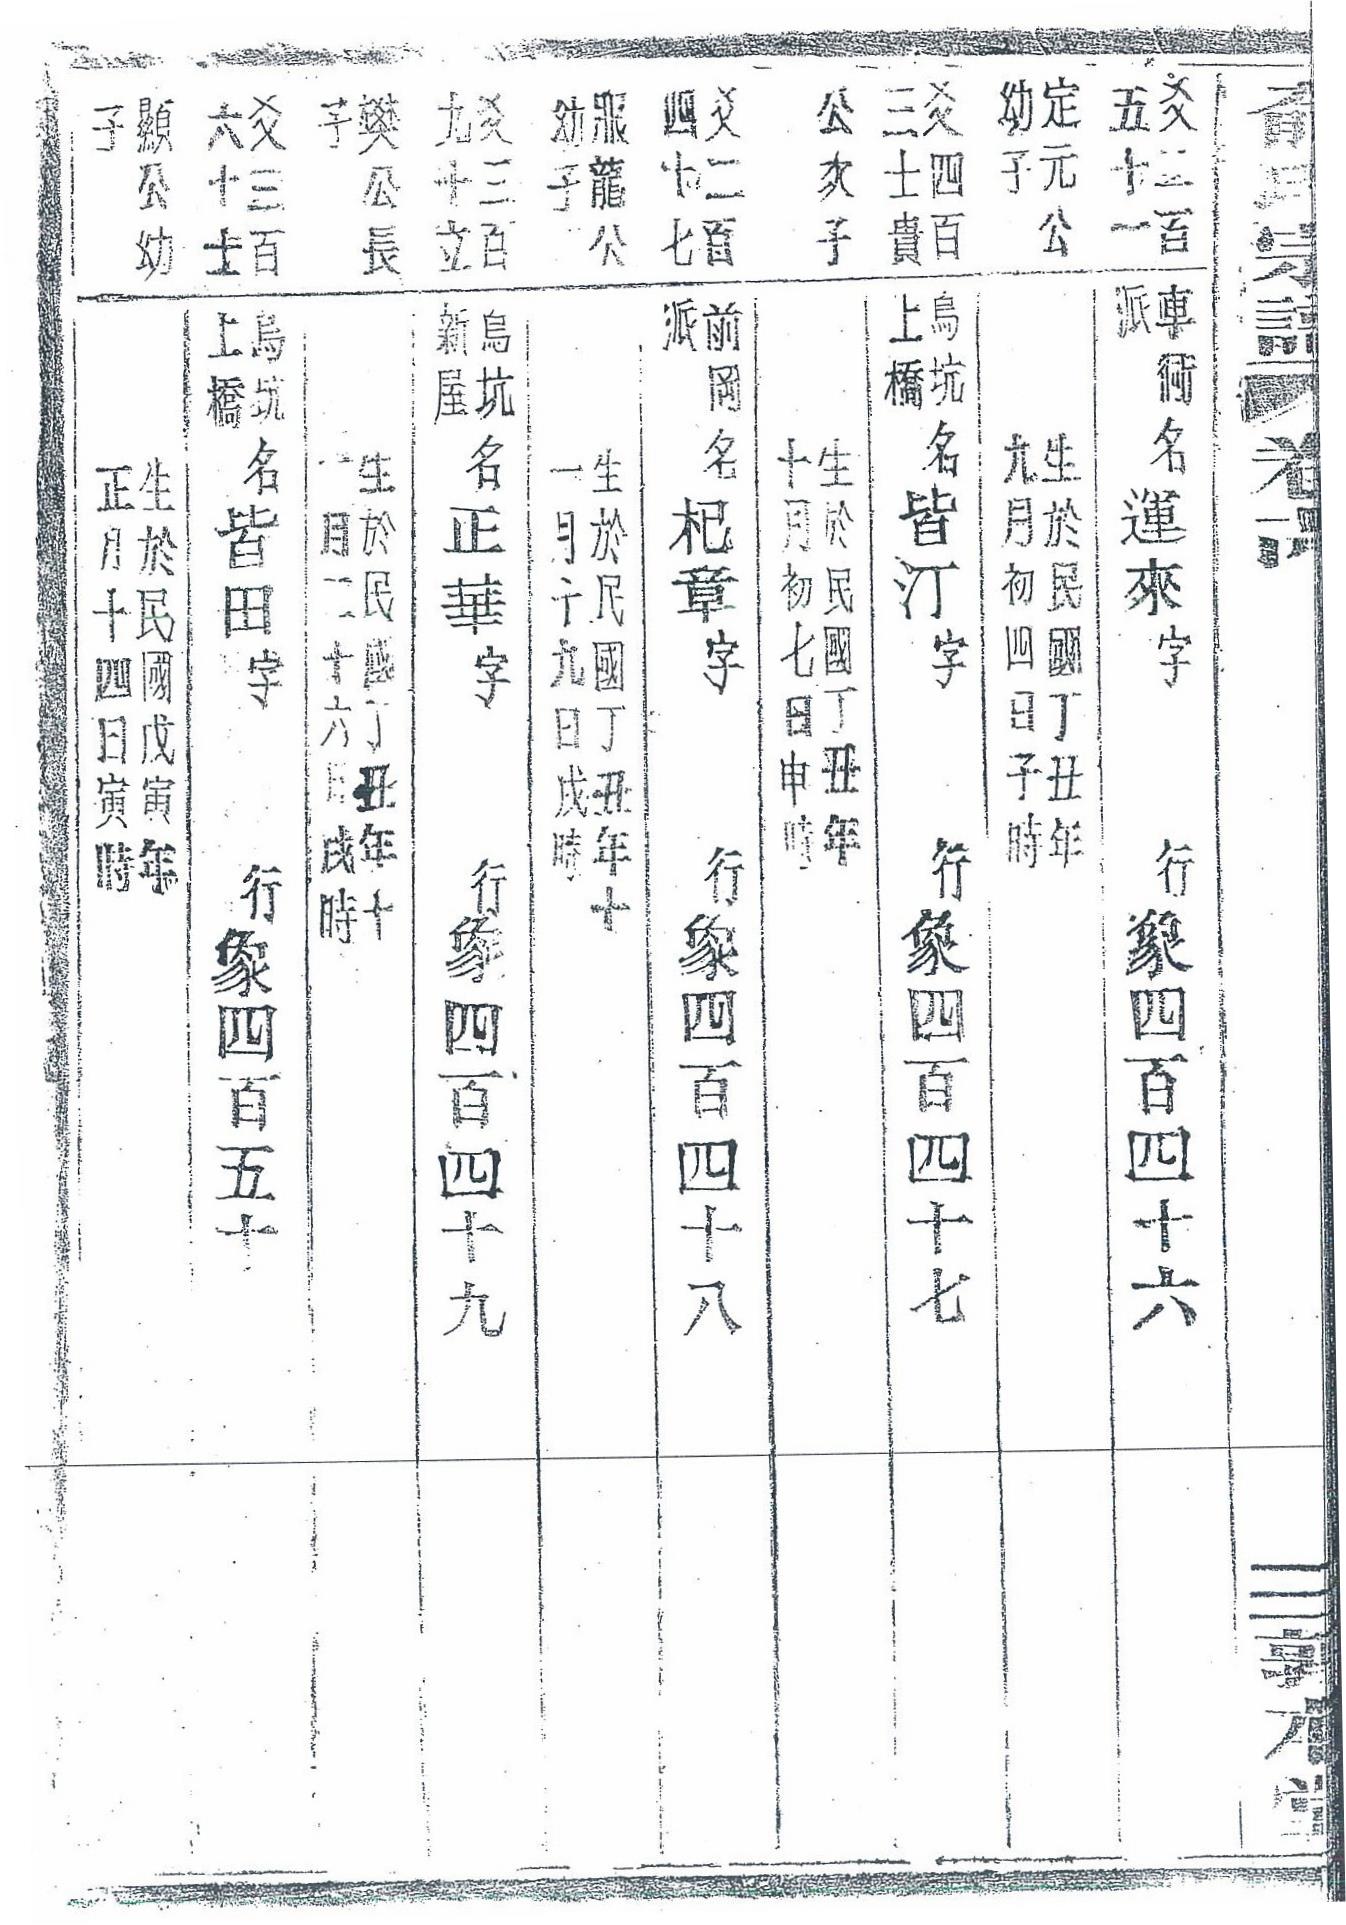 宗譜 卷
三 敦本堂
爻三百
五十一
定元公
幼子
車衖
派
名運來字
行象四百四十六
生於民國丁丑年
九月初四日子時
爻四百
三士貴
公次子
烏坑
上橋
名皆汀字
行象四百四十七
生於民國丁丑年
十月初七日申時
爻二百
四十七
龍公
幼子
前岡
派
名杞章字
行象四百四十八
生於民國丁丑年十
一月十九日戌時
爻三百
九十立
樊公長
子
烏坑
新屋
名正華字
行象四百四十九
生於民國丁丑年十
一月二十六日戌時
爻三百
六十士
顯公幼
子
烏坑
上橋
名皆田字
行象四百五十
生於民國戊寅年
正月十四日寅時